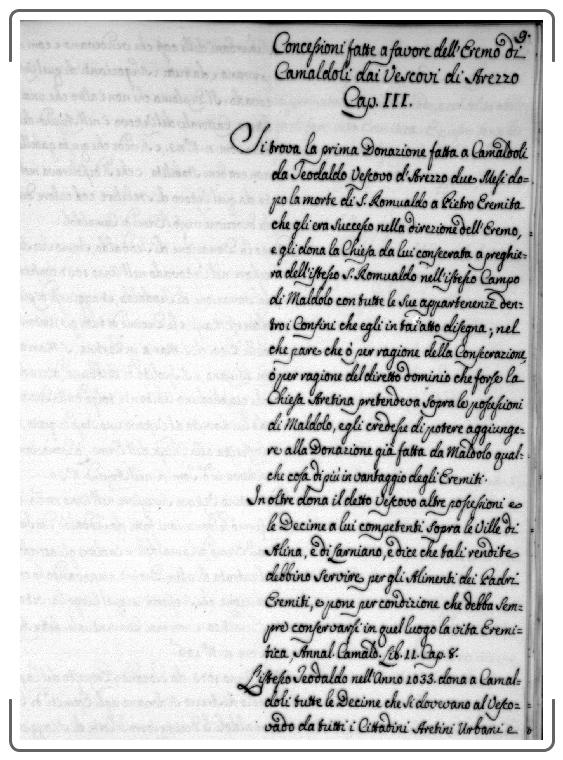 9.
Concessioni fatte a favore dell'Eremo di
Camaldoli dai Vescovi di Arezzo
Cap. III.
Si trova la prima Donazione fatta a Camaldoli
da Teodaldo Vescovo d'Arezzo due Mesi do=
po la morte di S. Romualdo a Pietro Eremita
che gli era succeso nella direzione dell'Eremo,
e gli dona la Chiesa da lui consecrata a preghie=
ra dell'istesso S. Romualdo nell'istesso Campo
di Maldolo con tutte le sue appartenenze den=
tro i Confini che egli in tai'atto disegna; nel
che pare che ò per ragione della Consecrazione,
ò per ragione del diretto dominio che forse la
Chiesa Aretina pretendeva sopra le possessioni
di Maldolo, egli credesse di potere aggiunge=
re alla Donazione già fatta da Maldolo qual=
che cosa di più in vantaggio degli Eremiti.
In oltre dona il detto Vescovo altre possessioni e
le Decime a lui competenti sopra le Ville di
Alina, e di Larniano, e dice che tali rendite
debbino servire per gli Alimenti dei Padri
Eremiti, e pone per condizione che debba sem=
pre conservarsi in quel luogo la vita Eremi=
tica, Annal. Camald. Lib. 11. Cap. 8.
L'istesso Teodaldo nell'Anno 1033. dona a Camal=
doli tutte le Decime che si dovevano al Vesco=
vado da tutti i Cittadini Aretini Urbani e